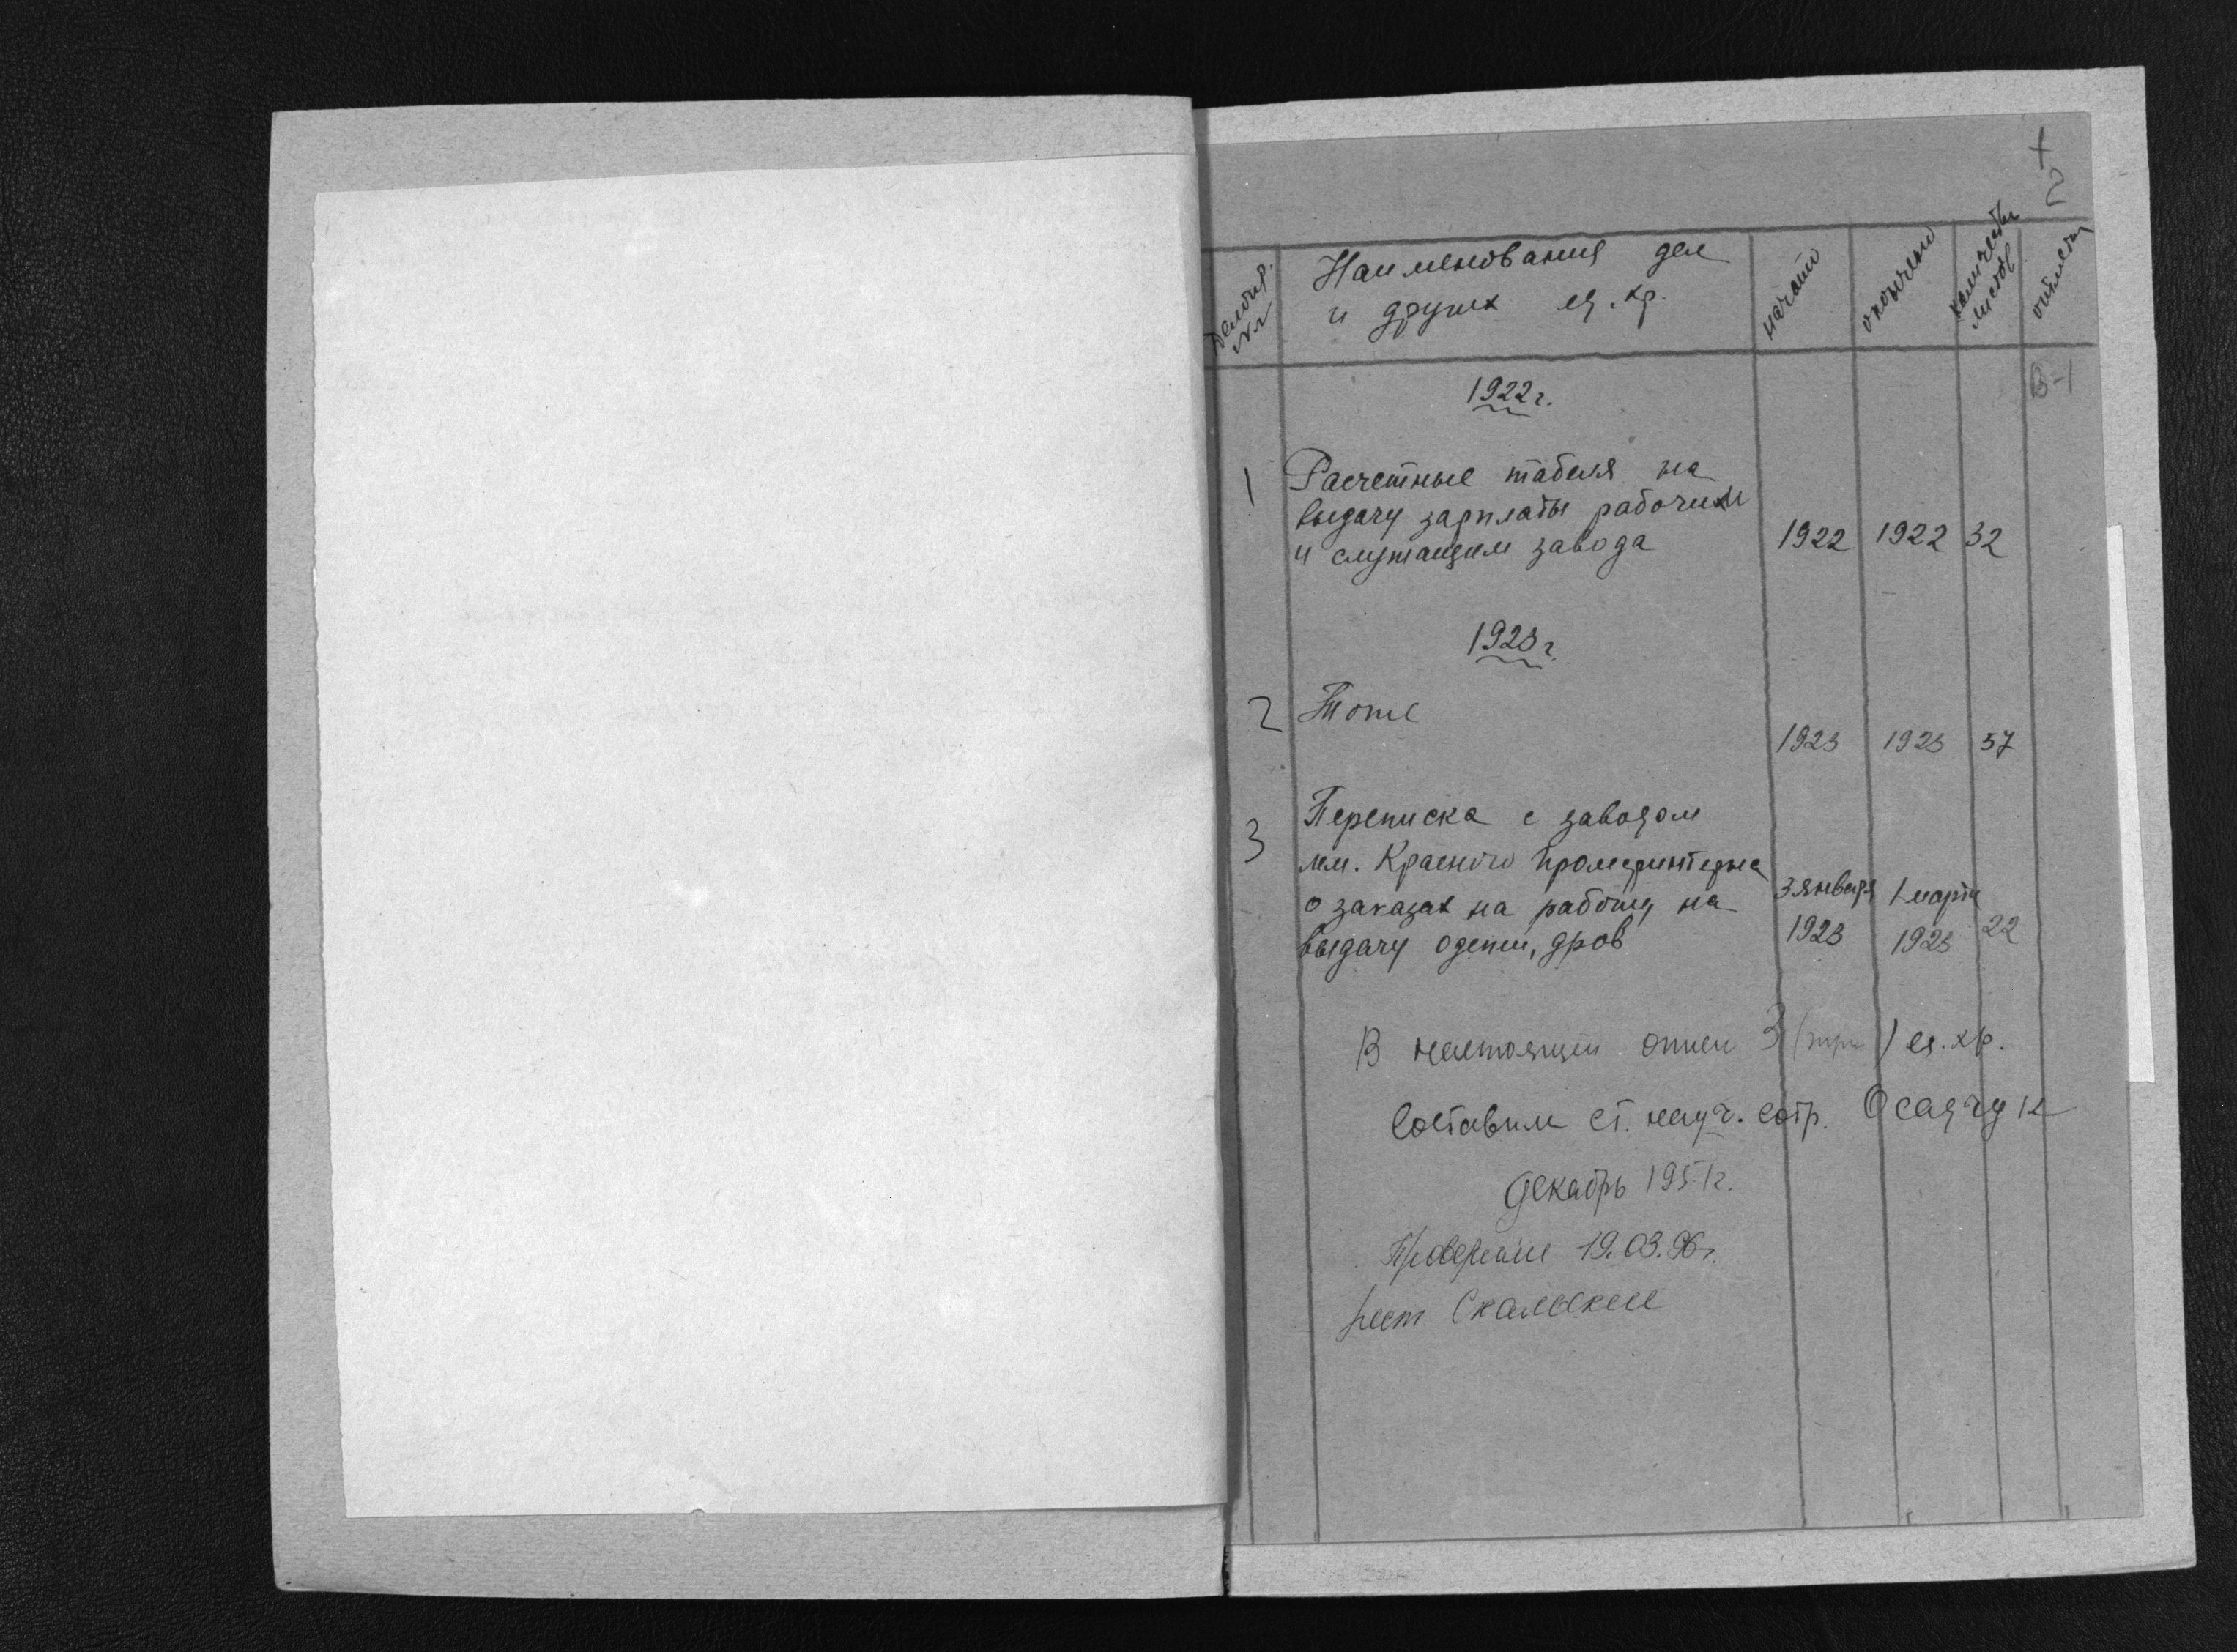 2
Наименования дел
и других ед. хр.
начато
окончено
количество
листов
В-1
1922 г.
1
Расчетные табеля на
выдачу зарплаты рабочим
и служащим завода
1922 1922 32
1923 г.
2
Тоже
1923 1923 57
3
Переписка с заводом
им. Красного Профинтерна
о заказах на работу на
выдачу одежи, дров
3 января
1923
1 марта
1923
22
В настоящей описи 3 (три) ед. хр.
Составил ст. науч. сотр. Осадчук
декабрь 1951 г.
Проверение 19.03.96 г.